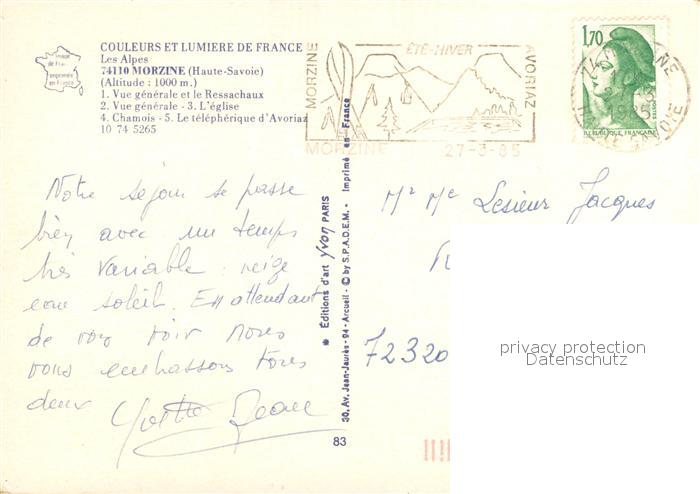 COULEURS ET LUMIERE DE FRANCE
Les Alpes
74110 MORZINE (Haute-Savoie)
(Altitude : 1000 m.)
1. Vue générale et le Ressachaux
2. Vue générale - 3. L'église
4. Chamois - 5. Le téléphérique d'Avoriaz
10 74 5265
Image de France
imprimée en France
MORZINE
ÉTÉ-HIVER
AVORIAZ
MORZINE 27-3-85
1,70
REPUBLIQUE FRANÇAISE
Notre sejour se passe
bien avec un temps
très variable : neige
eau soleil. En attendant
de vous voir nous
vous embrassons tous
deux
Yvette Jean
★ Éditions d'art yvon PARIS
30, Av. Jean-Jaurès - 94 - Arcueil - © by S.P.A.D.E.M. - Imprimé en France
83
Mr Me Lesieur Jacques
72320
privacy protection
Datenschutz